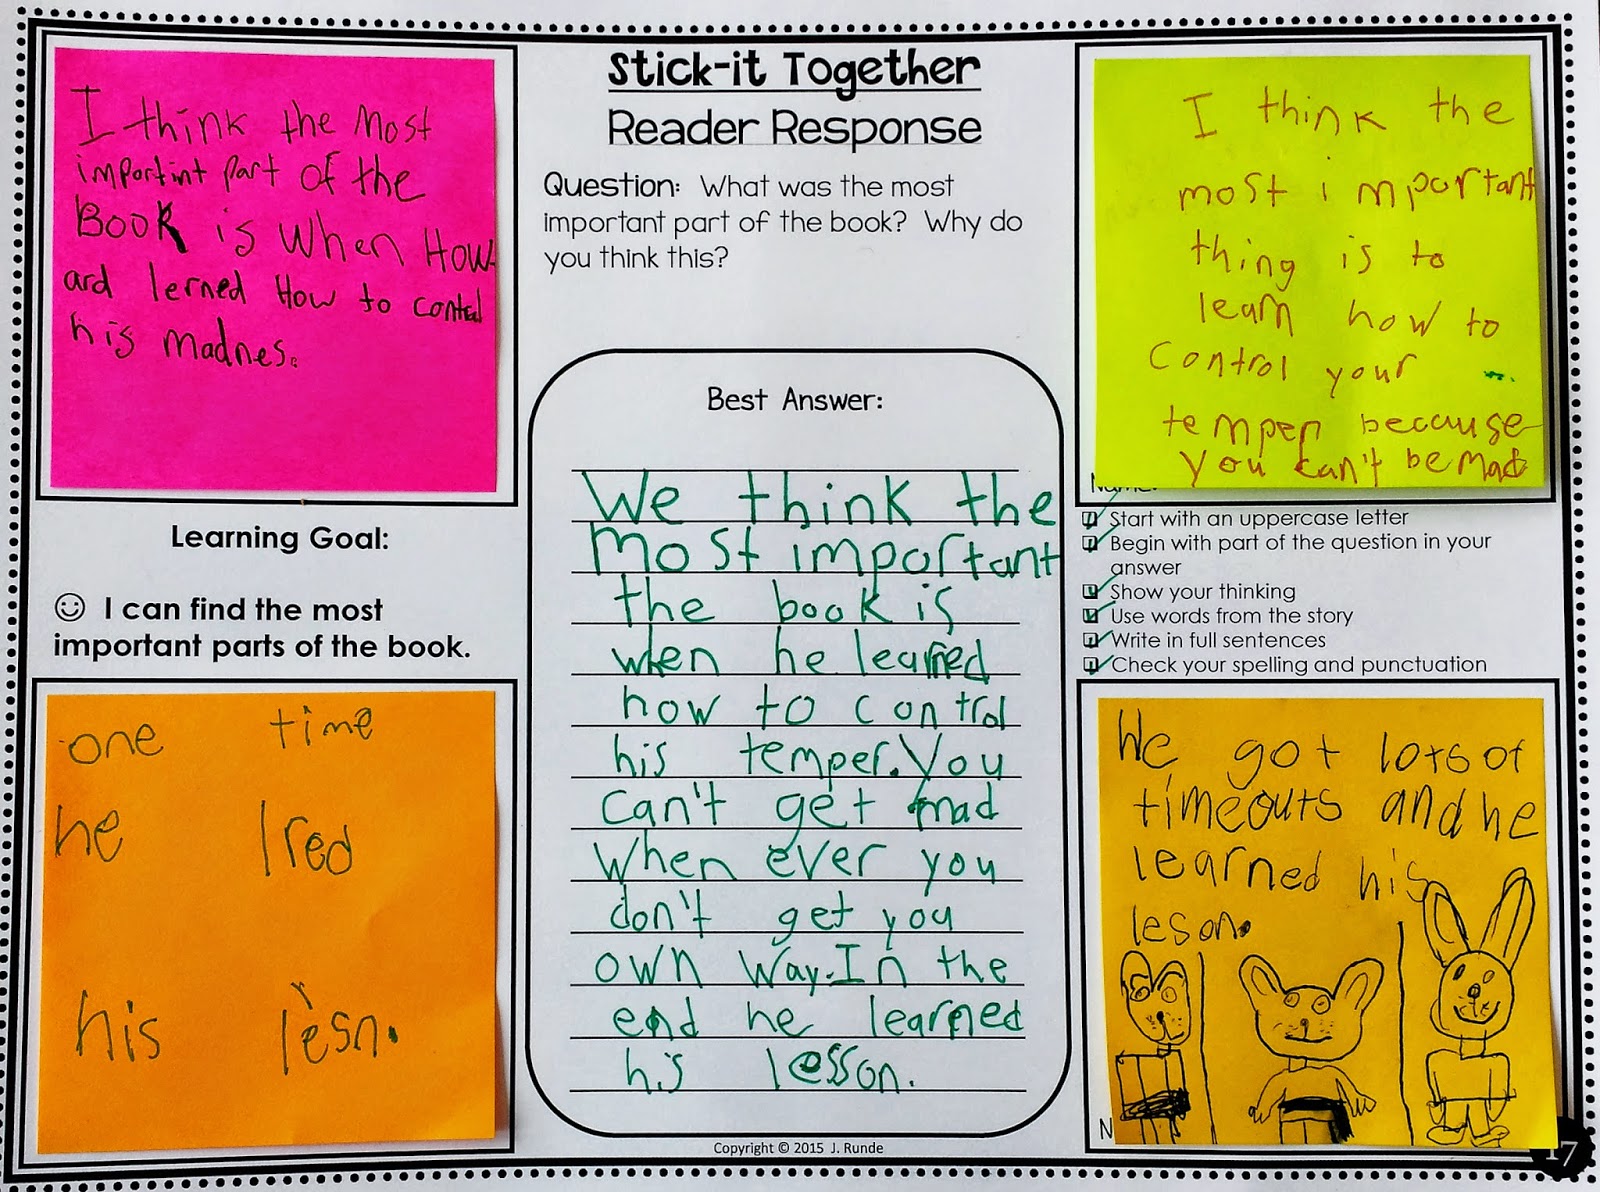 I think the most
importint part of the
Book is when How-
ard lerned How to contol
his madnes.
Stick-it Together
Reader Response
Question: What was the most
important part of the book? Why do
you think this?
I think the
most important
thing is to
learn how to
control your
temper because
you can't be mad
Learning Goal:
☺ I can find the most
important parts of the book.
Best Answer:
We think the
most important
the book is
when he learned
how to control
his temper. You
can't get mad
when ever you
don't get you
own way. In the
end he learned
his lesson.
Start with an uppercase letter
Begin with part of the question in your
answer
Show your thinking
Use words from the story
Write in full sentences
Check your spelling and punctuation
one time
he lred
his lesn.
He got lots of
timeouts and he
learned his
leson.
Copyright © 2015 J. Runde
17